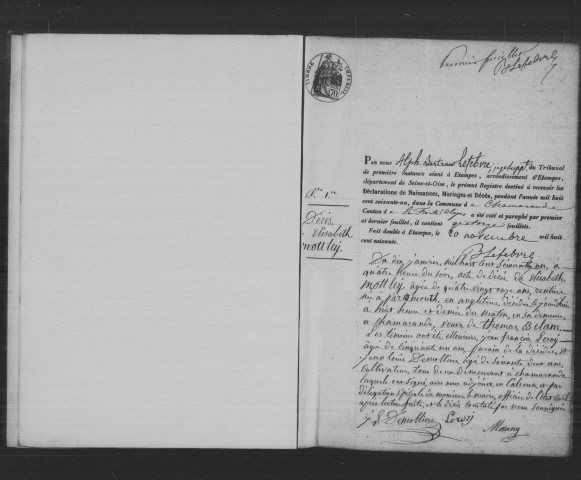 premier feuillet
BLefebvre
TIMBRE IMPERIAL
PAR nous Alph. Bertrand Lefebvre, juge suppt. du Tribunal
de première instance séant à Etampes, arrondissement d'Etampes,
département de Seine-et-Oise, le présent Registre destiné à recevoir les
Déclarations de Naissances, Mariages et Décès, pendant l'année mil huit
cent soixante-un, dans la Commune de Chamarande
Canton de La Ferté-Alais a été coté et paraphé par premier
et dernier feuillet, il contient quatorze feuillets.
Fait double à Etampes, le 20 novembre mil huit
cent soixante.
BLefebvre
N.° 1.er
Décès
Elisabeth
mottley
Du dix janvier, mil huit cent soixante un, à
quatre heure du soir, acte de décès de Elisabeth
Mottley, âgée de quatre vingt onze ans, rentière
née à portsmouth en angleterre décédée aujourd'hui
à huit heure et demie du matin, en sa demeure
à chamarande, veuve de thomas
Les témoins ont été, messieurs jean françois Leroy
âgé de cinquante un ans, de la décédée, et
jean louis Demollière âgé de soixante deux ans,
cultivateur, tous deux demeurant à chamarande
lesquels ont signé, avec nous adjoint, et par
délégation spéciale de monsieur le maire, officier de l'état civil
après lecture faite, et le décès constaté par nous soussigné
j L Demollière Leroy